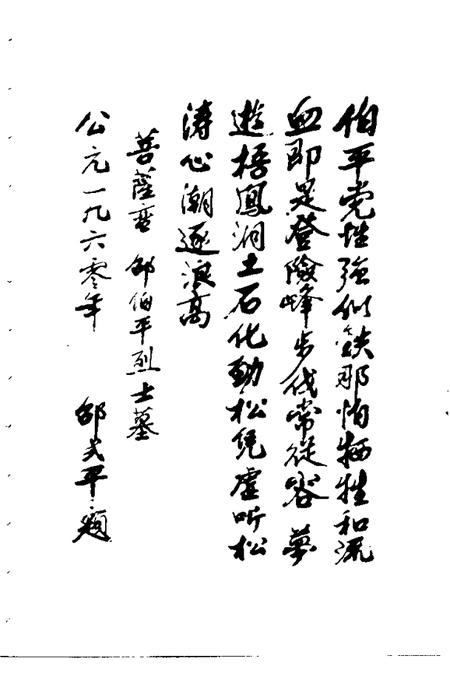 伯平党性强似铁那怕牺牲和流
血即是登险峰步伐常从容 梦
游梧凤洞土石化劲松凭虚听松
涛心潮逐浪高
菩萨蛮 邵伯平烈士墓
公元一九六零年 邵式平题